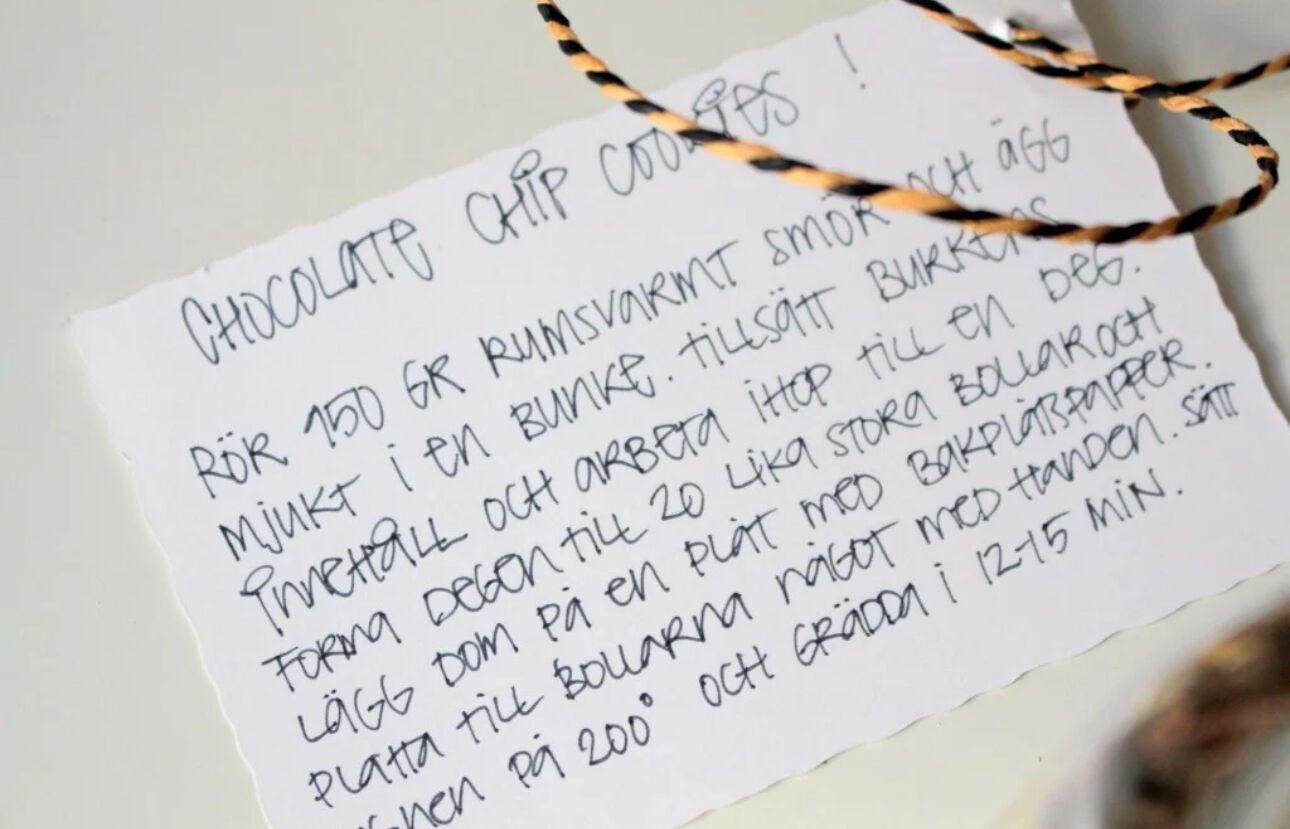 CHOCOLATE CHIP COOKIES !
RÖR 150 GR RUMSVARMT SMÖR OCH ÄGG
MJUKT I EN BUNKE. TILLSÄTT BURKENS
INNEHÅLL OCH ARBETA IHOP TILL EN DEG.
FORMA DEGEN TILL 20 LIKA STORA BOLLAR OCH
LÄGG DOM PÅ EN PLÅT MED BAKPLÅTSPAPPER.
PLATTA TILL BOLLARNA NÅGOT MED HANDEN. SÄTT
UGNEN PÅ 200° OCH GRÄDDA I 12-15 MIN.